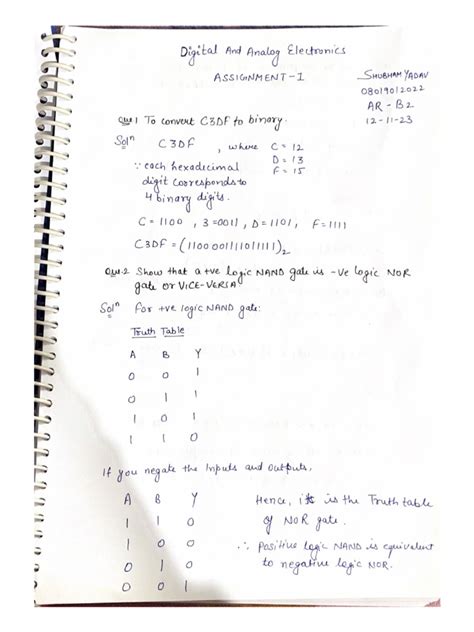 Digital And Analog Electronics
ASSIGNMENT-1
SHUBHAM YADAV
08019012022
AR-B2
12-11-23
Que 1 To convert C3DF to binary.
Solⁿ C3DF , where C = 12
D = 13
F = 15
∵ each hexadecimal
digit corresponds to
4 binary digits.
C = 1100 , 3 = 0011 , D = 1101 , F = 1111
C3DF = (1100001111011111)₂
Que.2 Show that a +ve logic NAND gate is -ve logic NOR
gate or VICE-VERSA
Solⁿ For +ve logic NAND gate:
Truth Table
A B Y
0 0 1
0 1 1
1 0 1
1 1 0
If you negate the Inputs and outputs,
A B Y
1 1 0
1 0 0
0 1 0
0 0 1
Hence, it is the Truth table
of NOR gate.
∴ Positive logic NAND is equivalent
to negative logic NOR.